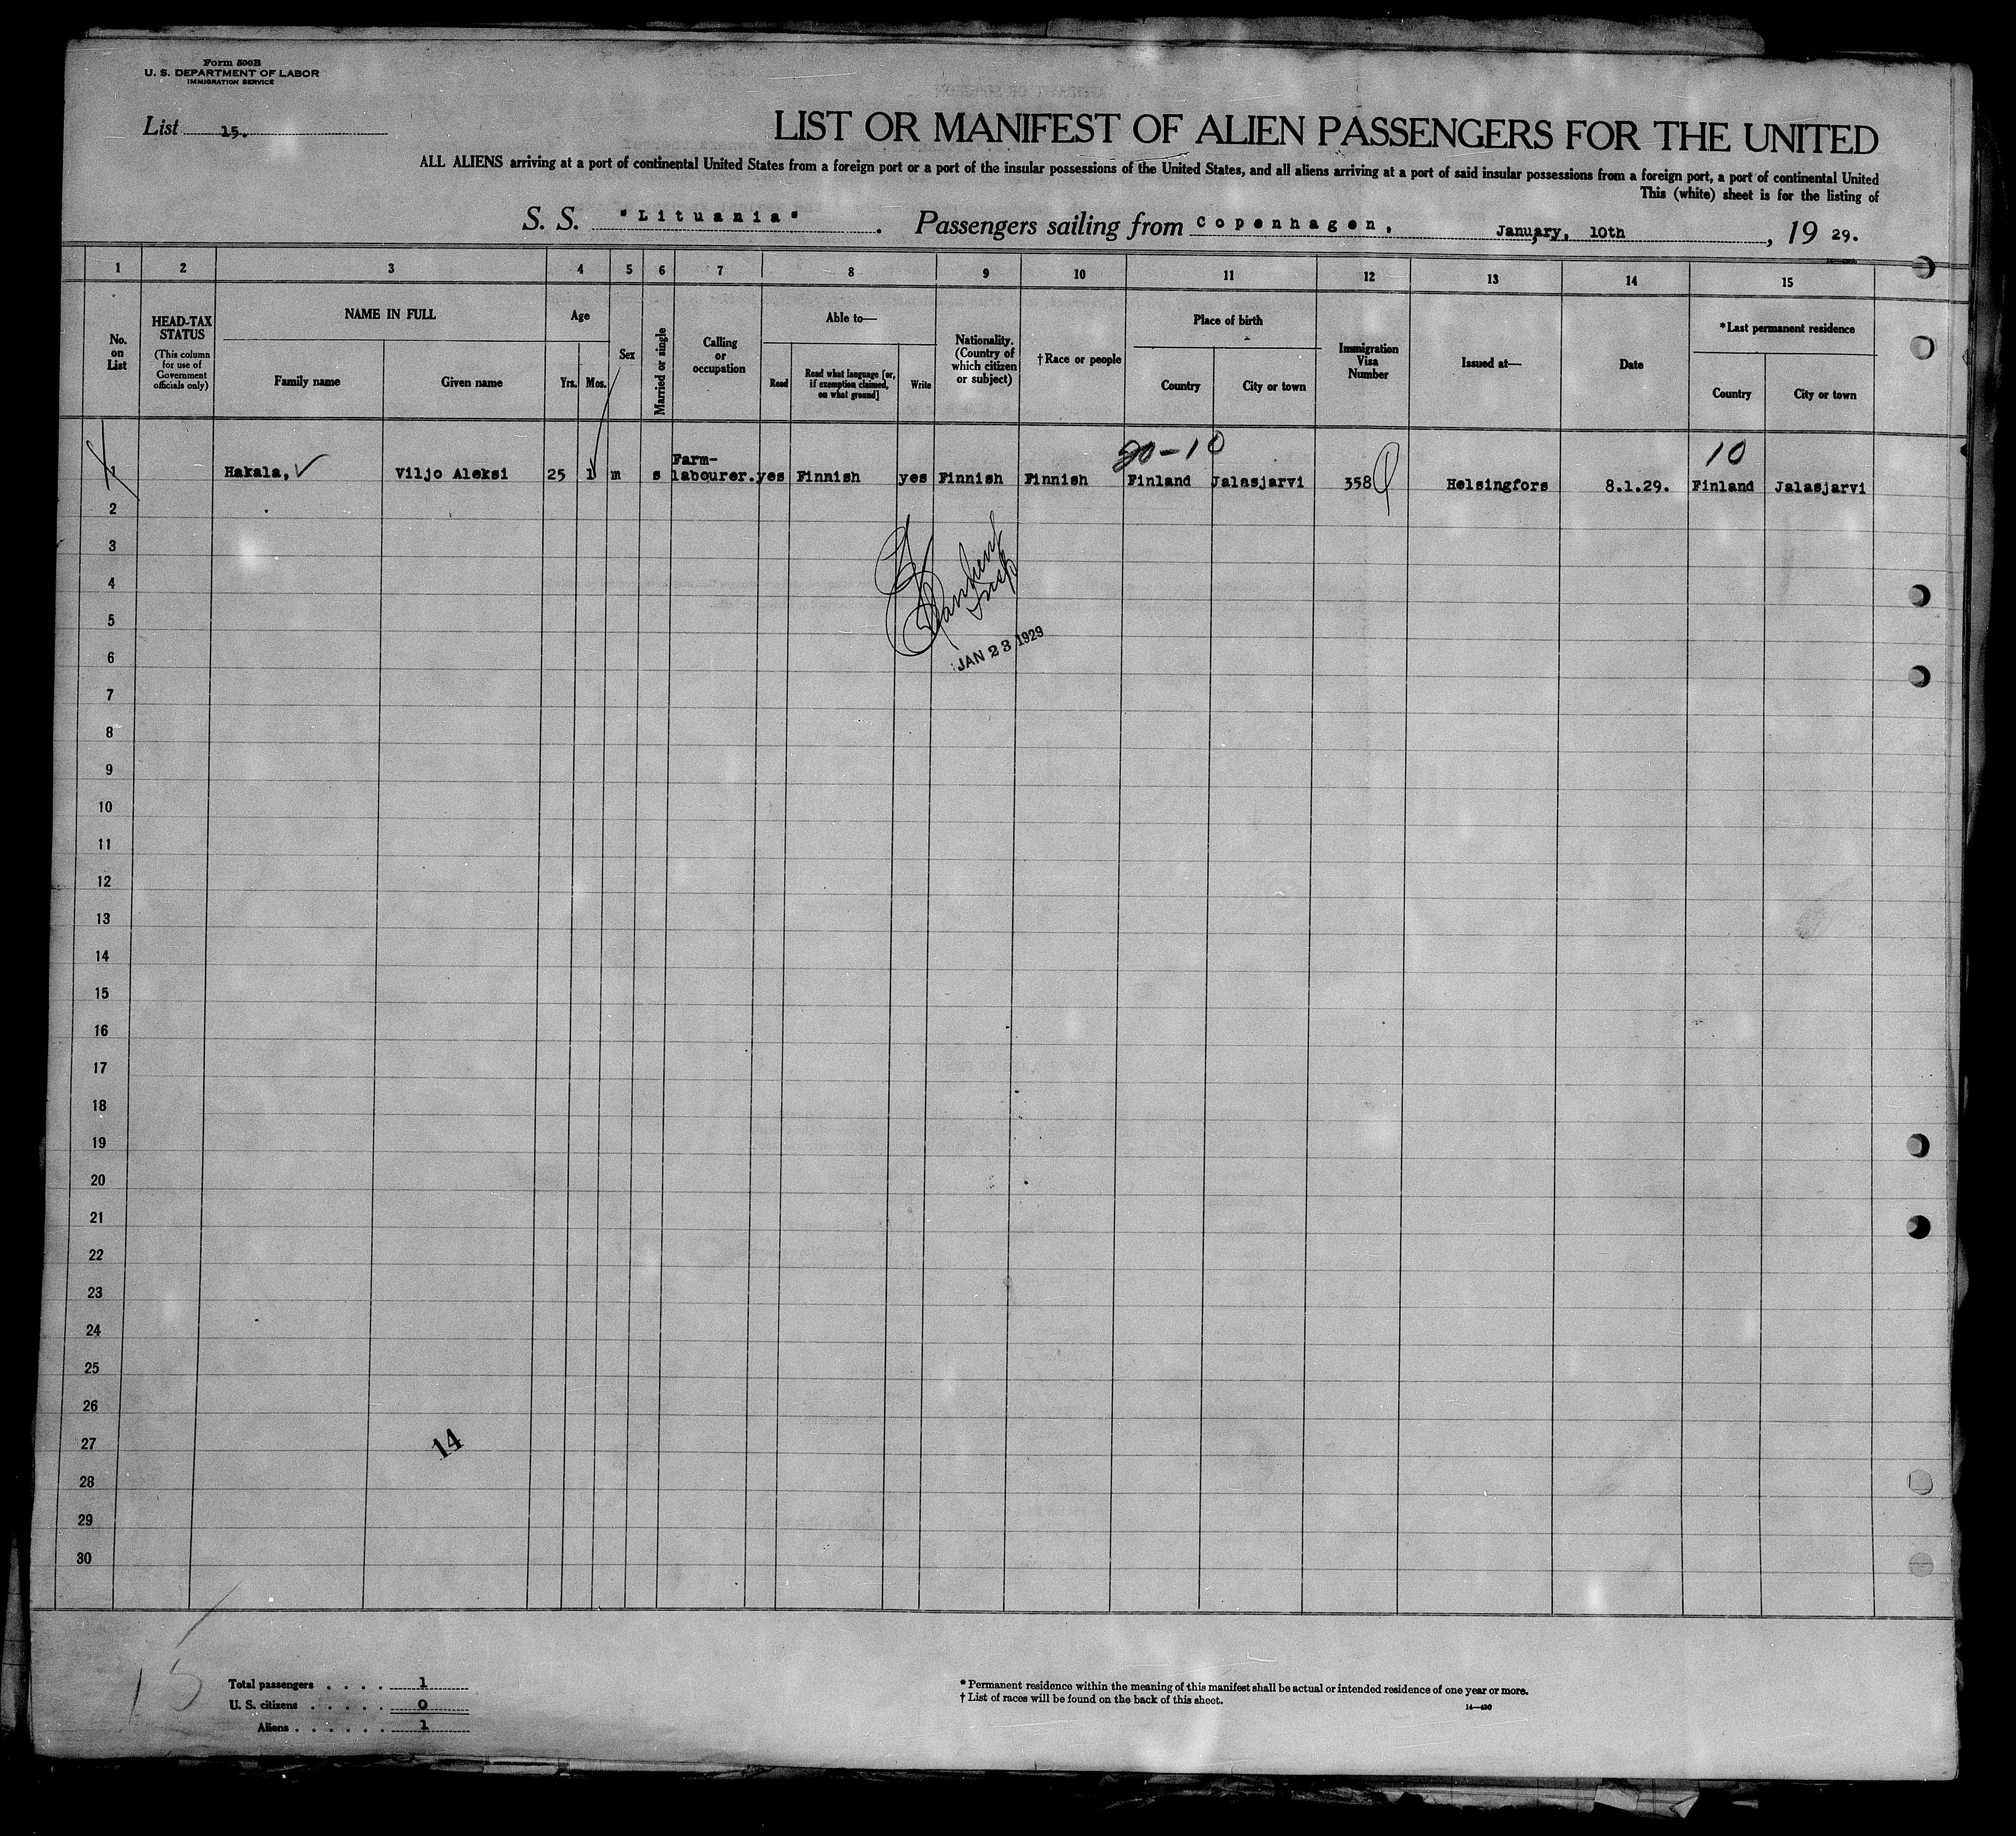 Form 500B
U. S. DEPARTMENT OF LABOR
IMMIGRATION SERVICE
List 15.
LIST OR MANIFEST OF ALIEN PASSENGERS FOR THE UNITED
ALL ALIENS arriving at a port of continental United States from a foreign port or a port of the insular possessions of the United States, and all aliens arriving at a port of said insular possessions from a foreign port, a port of continental United
This (white) sheet is for the listing of
S. S. "Lituania". Passengers sailing from Copenhagen, January, 10th, 19 29.
1 2 3 4 5 6 7 8 9 10 11 12 13 14 15
No. on List
HEAD-TAX STATUS
(This column for use of Government officials only)
NAME IN FULL
Family name Given name
Age
Yrs. Mos.
Sex
Married or single
Calling or occupation
Able to—
Read
Read what language [or, if exemption claimed, on what ground]
Write
Nationality. (Country of which citizen or subject)
†Race or people
Place of birth
Country City or town
Immigration Visa Number
Issued at—
Date
*Last permanent residence
Country City or town
20-10 10
1 Hakala, Viljo Aleksi 25 1 m s Farm-labourer. yes Finnish yes Finnish Finnish Finland Jalasjarvi 358 Helsingfors 8.1.29. Finland Jalasjarvi
2
3
4
5
6
Insp
JAN 23 1929
7
8
9
10
11
12
13
14
15
16
17
18
19
20
21
22
23
24
25
26
27
14
28
29
30
15
Total passengers . . . . 1
U. S. citizens . . . . . 0
Aliens . . . . . . 1
* Permanent residence within the meaning of this manifest shall be actual or intended residence of one year or more.
† List of races will be found on the back of this sheet.
14—430